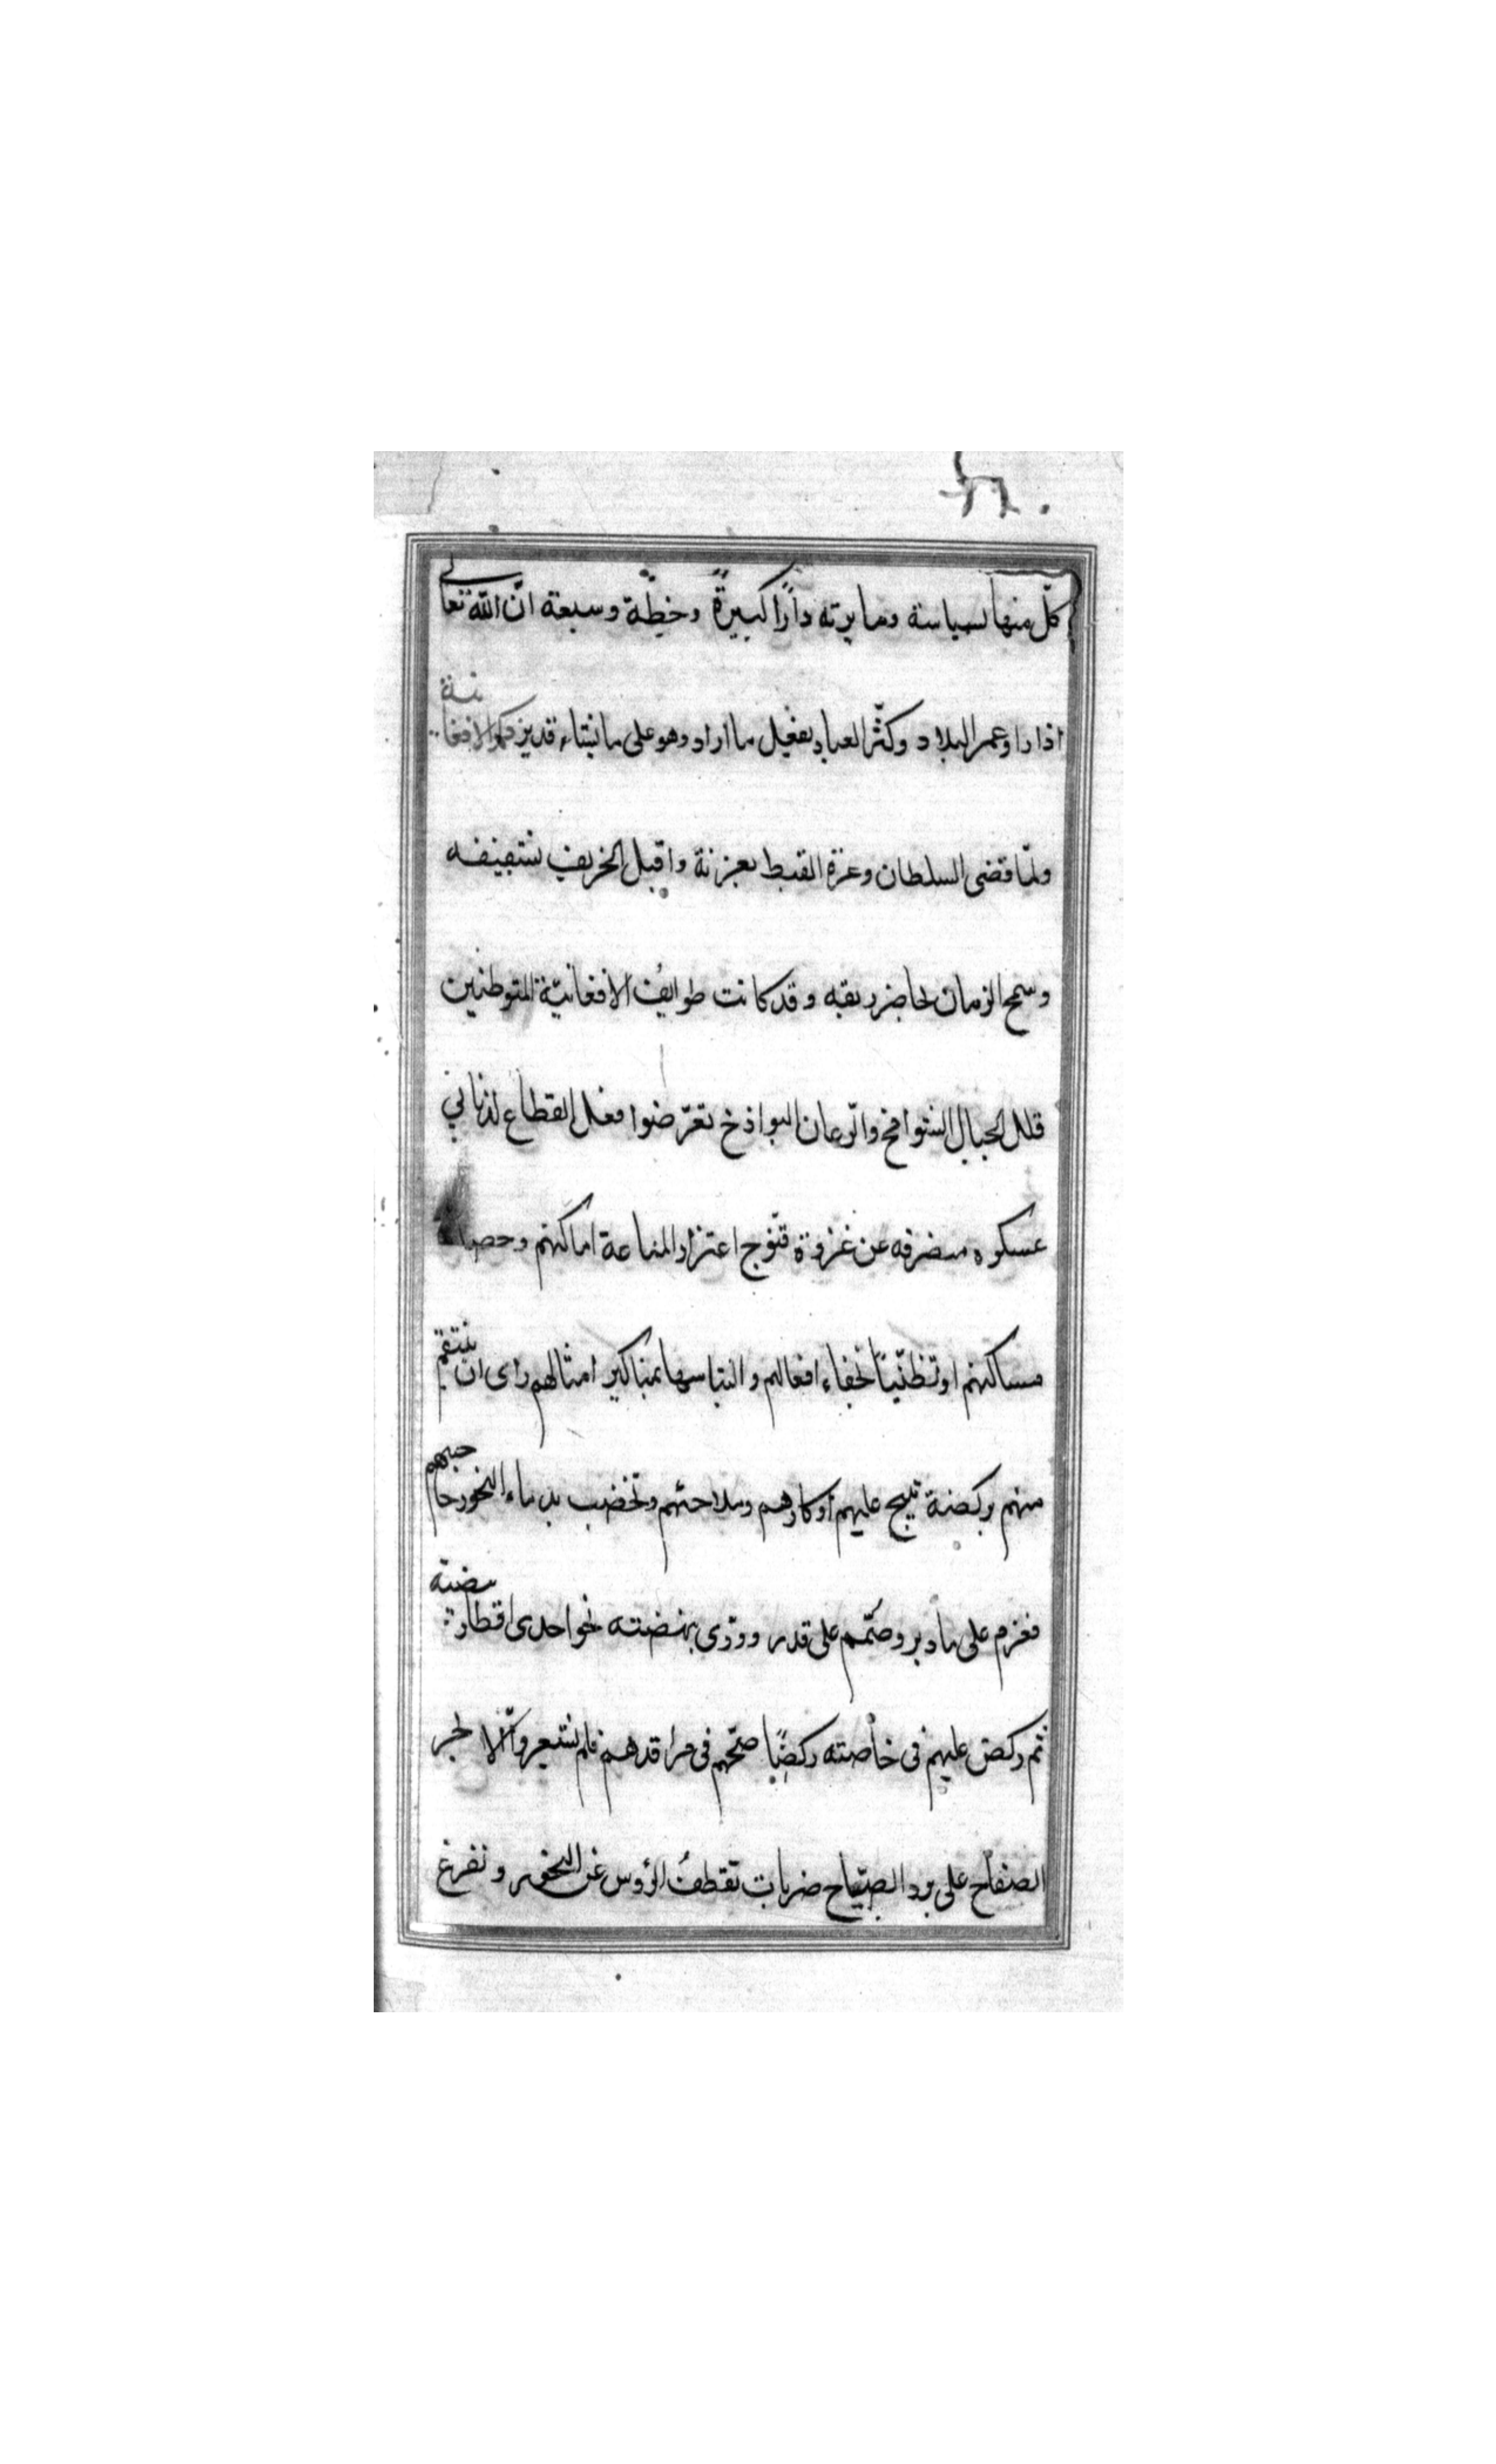 كلّ منها لسياسة وما يرته دارًا كبيرةً وخطّة وسيعة انّ الله تعالى
اذا راد عمر البلاد وكثّر العباد يفعل ما اراد وهو على ما يشاء قدير ذكر الافغانية
ولمّا قضى السلطان وغرة القيظ بغزنة واقبل الخريف بشفيفه
وسمح الزمان لحاضر ريقه وقد كانت طوايفُ الافغانيّة المتوطنين
قلل الجبال الشوامخ والرّعان البواذخ تعرّضوا فعل القطاع لذنابي
عسكره منصرفه عن غزوة قنّوج اعتزازا لمناعة اماكنهم
مساكنهم او تظنّيًا لخفاء افعالهم والتباسها بمناكير امثالهم راى ان ينتقم
منهم بركضة تبيح عليهم أوكارهم وتخضب بدماء النحور
فعزم على ما دبر وصمّم على قدر وورّى بنهضته نحو احدى اقطار بيضته
ثم ركض عليهم فى خاصته ركضًا صبّحهم فى مراقدهم فلم يشعروا الّا لحر
الصفاح على برد الصّباح ضربات تقطفُ الرؤس عن النحور وتفرغ